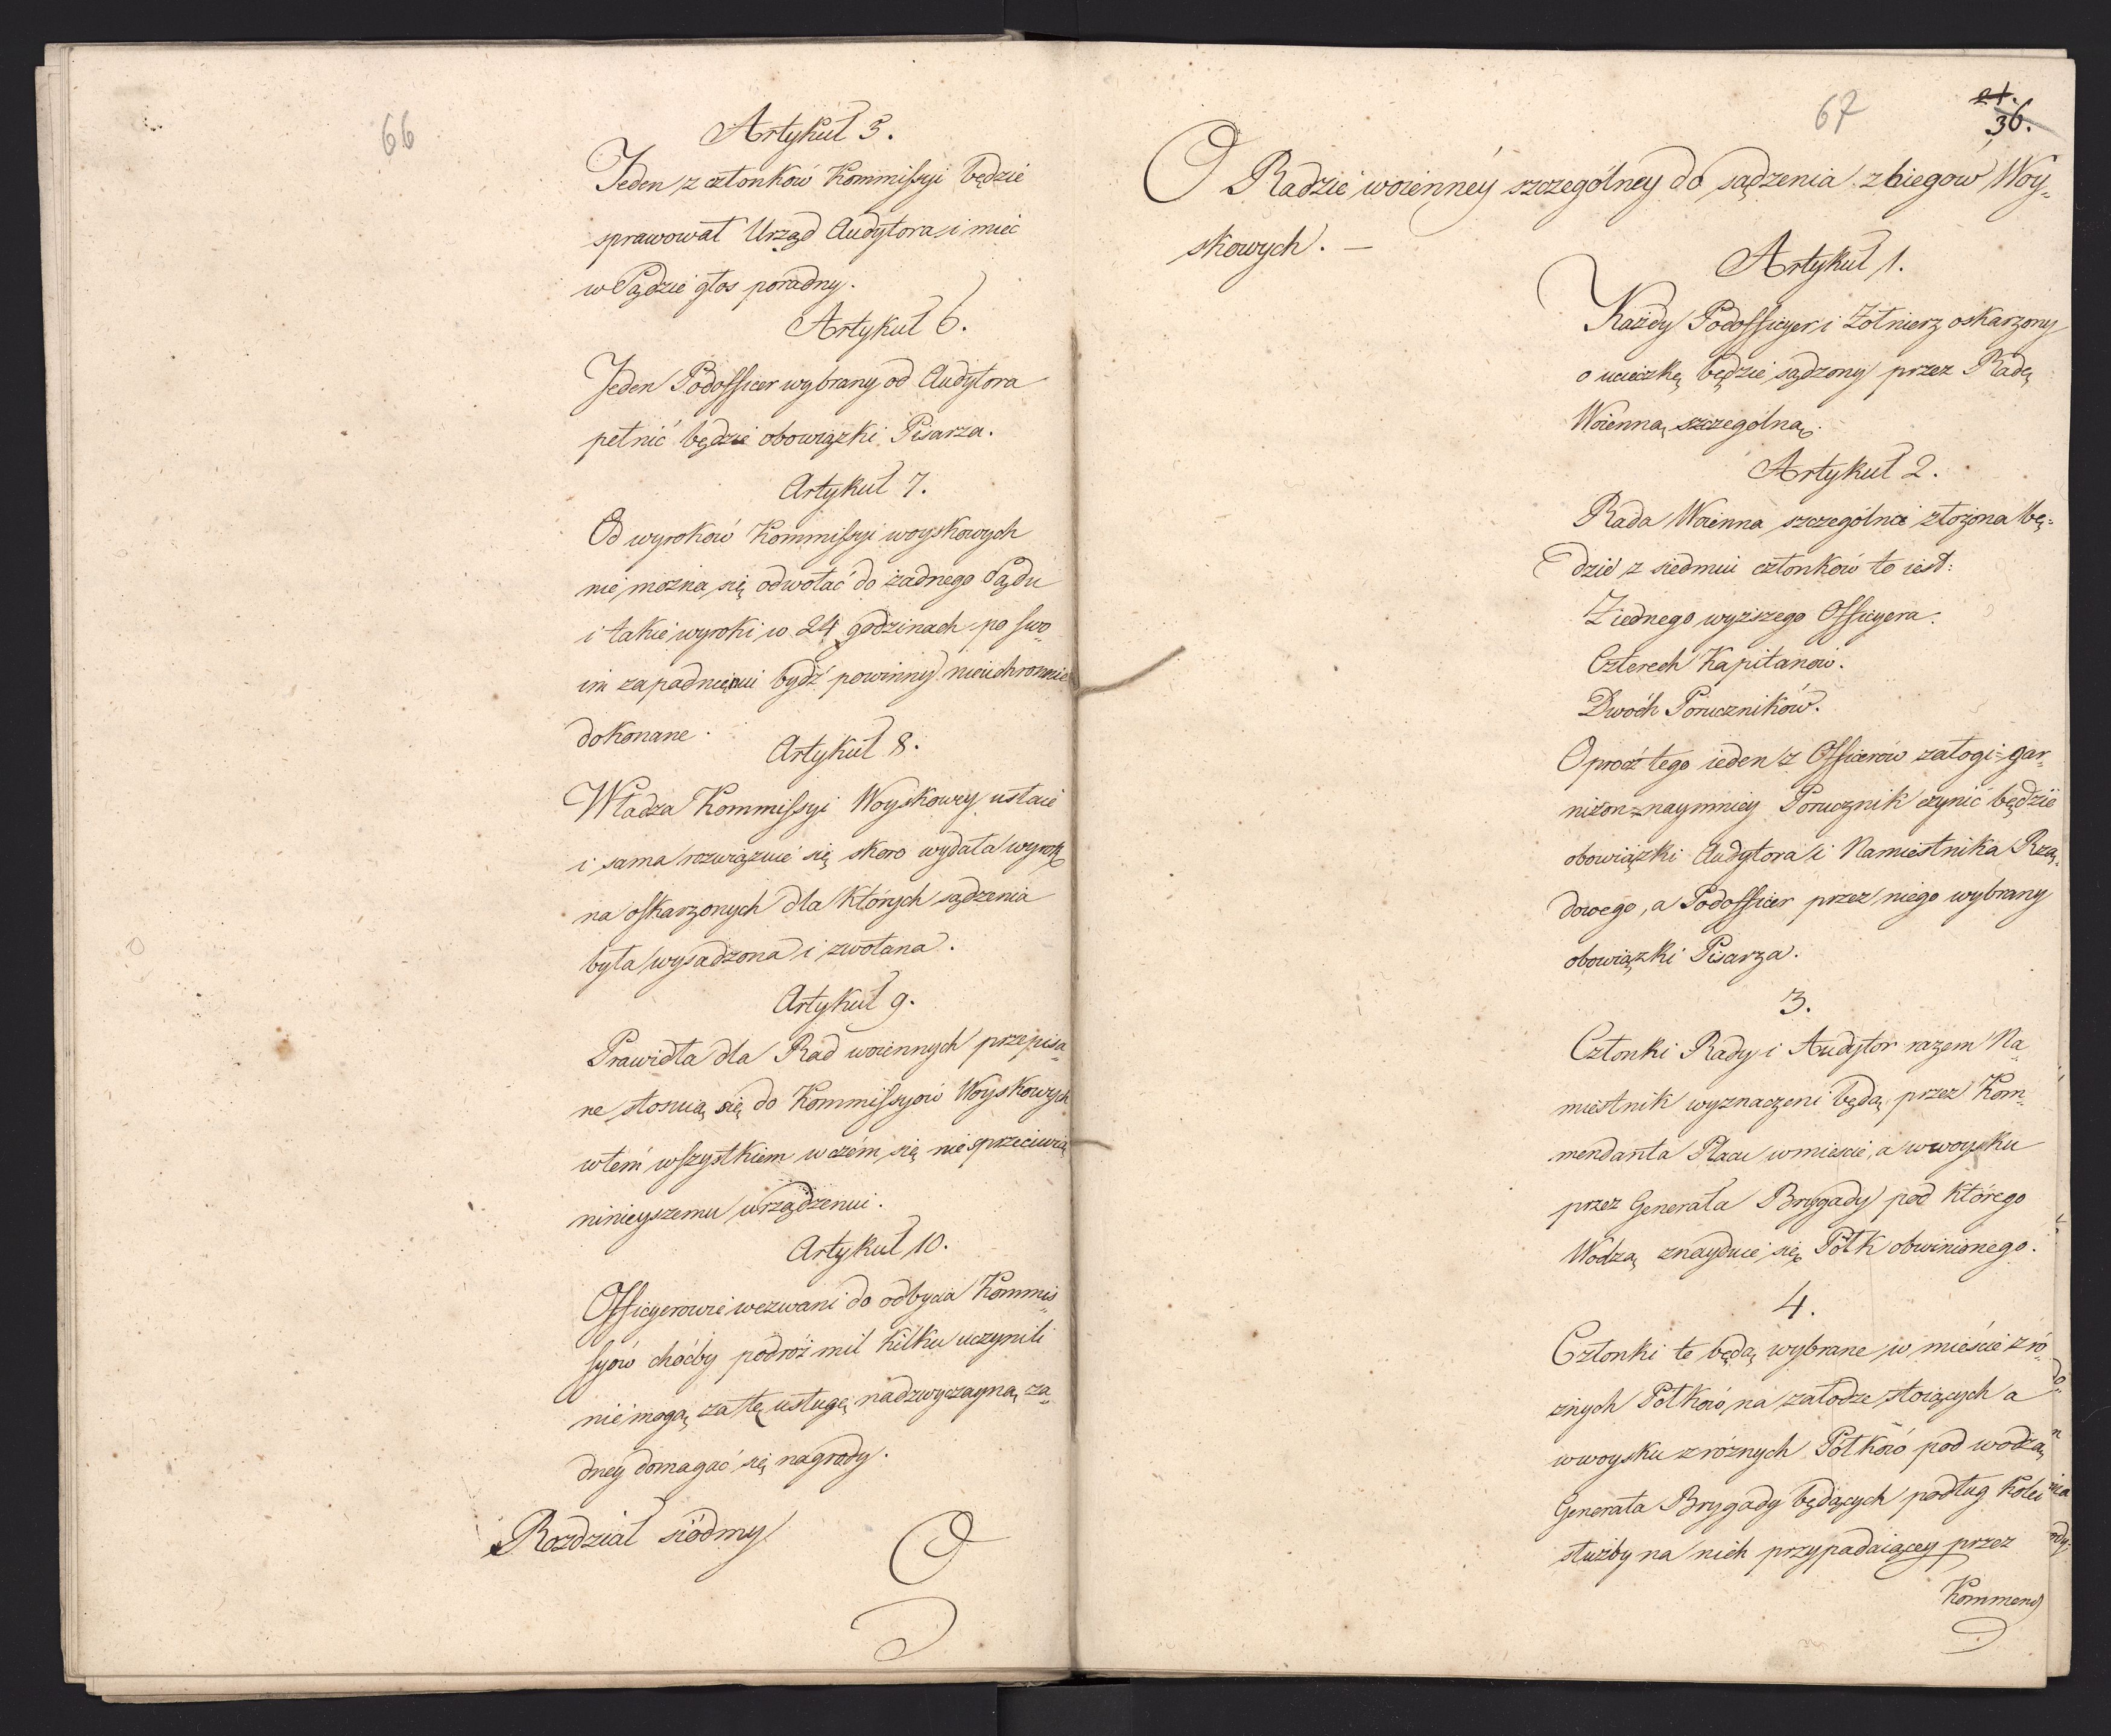 66
Artykuł 5.
Jeden z członków Kommissyi będzie
sprawował Urząd Audytora i mieć
w Sądzie głos poradny.
Artykuł 6.
Jeden Podofficer wybrany od Audytora
pełnić będzie obowiązki Pisarza.
Artykuł 7.
Od wyroków Kommissyi woyskowych
nie można się odwołać do żadnego Sądu
i takie wyroki w 24 godzinach po swo=
im zapadnieniu bydź powinny nieuchronnie
dokonane.
Artykuł 8.
Władza Kommissyi Woyskowey ustaie
i sama rozwiązuie się skoro wydała wyrok
na oskarzonych dla których sądzenia
była wysadzona i zwołana.
Artykuł 9.
Prawidła dla Rad woiennych przepisa=
ne stosuią się do Kommissyów Woyskowych
w tém wszystkiem w czém się nie sprzeciwią
ninieyszemu urządzeniu.
Artykuł 10.
Officyerowie wezwani do odbycia Kommis=
syów choćby podróż mil kilku uczynili
nie mogą za tę usługę nadzwyczayną ża=
dney domagać się nagrody.
Rozdział siódmy
O
67
21.
36.
O Radzie woienney szczególney do sądzenia zbiegów Woy=
skowych. —
Artykuł 1.
Każdy Podofficyer i Żołnierz oskarzony
o ucieczkę będzie sądzony przez Radę
Woienną szczególną.
Artykuł 2.
Rada Woienna szczególnie złożona bę=
dzie z siedmiu członków to iest:
Z iednego wyższego Officyera.
Czterech Kapitanów.
Dwóch Poruczników.
Oprócz tego ieden z Officerów załogi = gar=
nizon = naymniey Porucznik czynić będzie
obowiązki Audytora i Namiestnika Rzą=
dowego, a Podofficer przez niego wybrany
obowiązki Pisarza.
3.
Członki Rady i Audytor razem Na=
miestnik wyznaczeni będą przez Kom=
mendanta Placu w mieście, a w woysku
przez Generała Brygady pod którego
Wodzą znayduie się Półk obwinionego.
4.
Członki te będą wybrane w mieście z ró=
żnych Półków na załodze stoiących a
w woysku z różnych Półków pod wodzą
Generała Brygady będących podług kolei
służby na nich przypadaiącey przez
Kommend